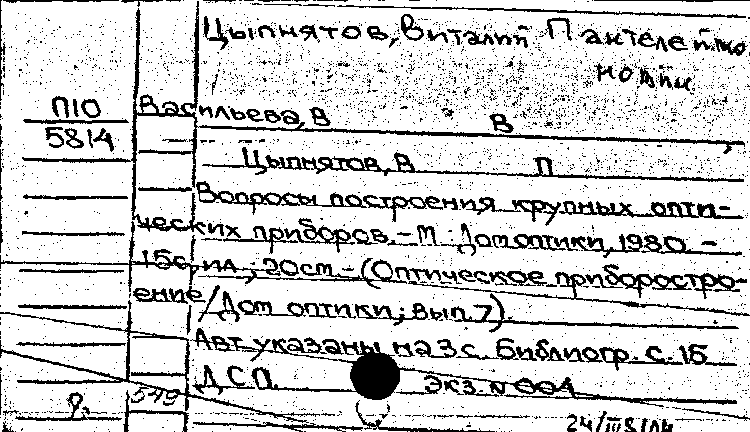 Цыпнятов, Виталий Пантелеймо
нович
П10 Васильева, В В
5814
Цыпнятов, В П
Вопросы построения крупных опти-
ческих приборов. – М : Дом оптики, 1980. –
15с., ил.; 20см. – (Оптическое приборостро-
ение/Дом оптики; Вып. 7).
Авт. указаны на 3 с. Библиогр. с. 15
ДСП. Экз. N 004
549